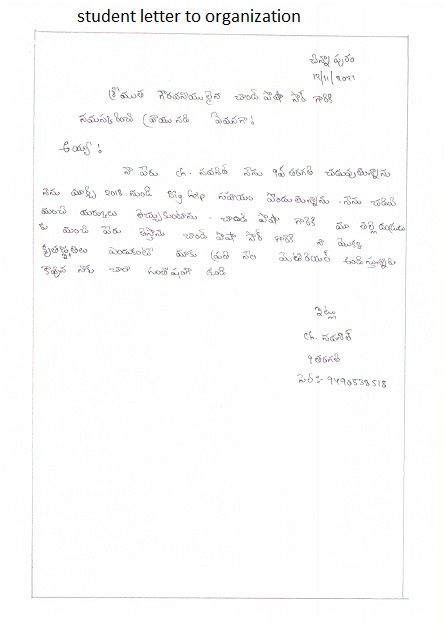 student letter to organization
చిన్నాపురం
17/11/2021
శ్రీయుత గౌరవనీయులైన చాంద్ పాషా సార్ గారికి
నమస్కరించి వ్రాయునది ఏమనగా!
అయ్యా!
నా పేరు ch. నేను 9వ తరగతి చదువుతున్నాను
నేను మార్చి 2018 నుండి Big help సహాయం పొందుతున్నాను. నేను చదివి
మంచి మార్కులు తెచ్చుకుంటాను. చాంద్ పాషా గారికి మా తల్లిదండ్రులు
కు మంచి పేరు తెస్తాను చాంద్ పాషా సార్ గారికి నా యొక్క
కృతజ్ఞతలు ఎందుకంటే మాకు ప్రతి నెల మెటీరియల్ ఇస్తున్నారు
కావున నాకు చాలా సంతోషంగా ఉంది
ఇట్లు
ch.
9 తరగతి
సెల్ :- 9490538518